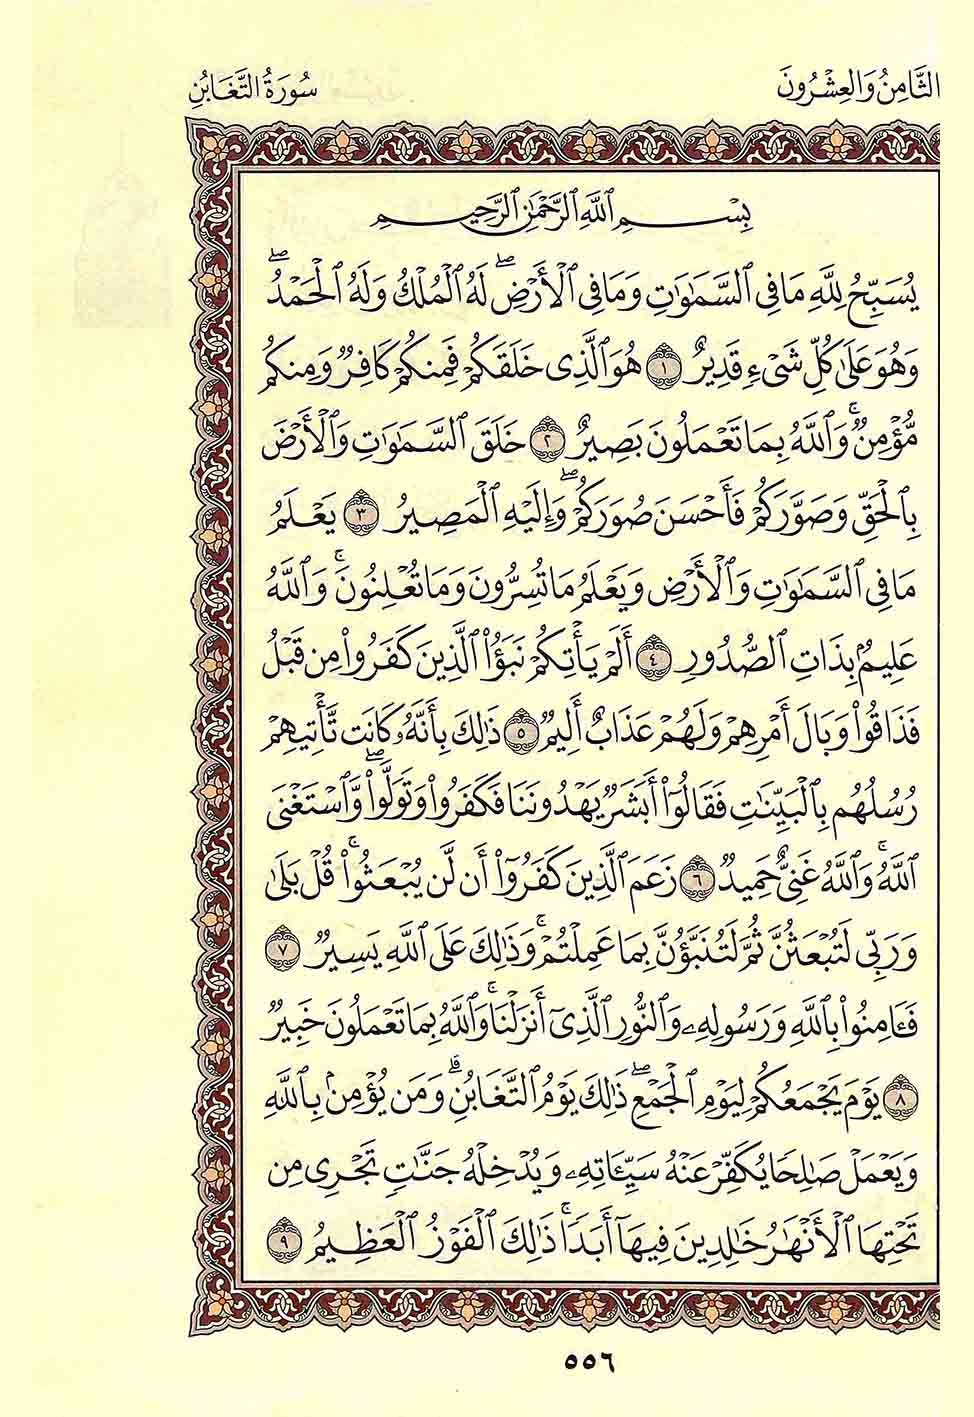 الثَّامِنُ وَالعِشْرُونَ
سُورَةُ التَّغَابُنِ
بِسْمِ ٱللَّهِ ٱلرَّحْمَٰنِ ٱلرَّحِيمِ
يُسَبِّحُ لِلَّهِ مَا فِي ٱلسَّمَٰوَٰتِ وَمَا فِي ٱلْأَرْضِۖ لَهُ ٱلْمُلْكُ وَلَهُ ٱلْحَمْدُۖ
وَهُوَ عَلَىٰ كُلِّ شَىْءٍ قَدِيرٌ ١ هُوَ ٱلَّذِى خَلَقَكُمْ فَمِنكُمْ كَافِرٌ وَمِنكُم
مُّؤْمِنٌۚ وَٱللَّهُ بِمَا تَعْمَلُونَ بَصِيرٌ ٢ خَلَقَ ٱلسَّمَٰوَٰتِ وَٱلْأَرْضَ
بِٱلْحَقِّ وَصَوَّرَكُمْ فَأَحْسَنَ صُوَرَكُمْۖ وَإِلَيْهِ ٱلْمَصِيرُ ٣ يَعْلَمُ
مَا فِي ٱلسَّمَٰوَٰتِ وَٱلْأَرْضِ وَيَعْلَمُ مَا تُسِرُّونَ وَمَا تُعْلِنُونَۚ وَٱللَّهُ
عَلِيمٌۢ بِذَاتِ ٱلصُّدُورِ ٤ أَلَمْ يَأْتِكُمْ نَبَؤُا۟ ٱلَّذِينَ كَفَرُوا۟ مِن قَبْلُ
فَذَاقُوا۟ وَبَالَ أَمْرِهِمْ وَلَهُمْ عَذَابٌ أَلِيمٌ ٥ ذَٰلِكَ بِأَنَّهُۥ كَانَت تَّأْتِيهِمْ
رُسُلُهُم بِٱلْبَيِّنَٰتِ فَقَالُوٓا۟ أَبَشَرٌ يَهْدُونَنَا فَكَفَرُوا۟ وَتَوَلَّوا۟ۖ وَّٱسْتَغْنَى
ٱللَّهُۚ وَٱللَّهُ غَنِىٌّ حَمِيدٌ ٦ زَعَمَ ٱلَّذِينَ كَفَرُوٓا۟ أَن لَّن يُبْعَثُوا۟ۚ قُلْ بَلَىٰ
وَرَبِّى لَتُبْعَثُنَّ ثُمَّ لَتُنَبَّؤُنَّ بِمَا عَمِلْتُمْۚ وَذَٰلِكَ عَلَى ٱللَّهِ يَسِيرٌ ٧
فَـَٔامِنُوا۟ بِٱللَّهِ وَرَسُولِهِۦ وَٱلنُّورِ ٱلَّذِىٓ أَنزَلْنَاۚ وَٱللَّهُ بِمَا تَعْمَلُونَ خَبِيرٌ
٨ يَوْمَ يَجْمَعُكُمْ لِيَوْمِ ٱلْجَمْعِۖ ذَٰلِكَ يَوْمُ ٱلتَّغَابُنِۗ وَمَن يُؤْمِنۢ بِٱللَّهِ
وَيَعْمَلْ صَٰلِحًا يُكَفِّرْ عَنْهُ سَيِّـَٔاتِهِۦ وَيُدْخِلْهُ جَنَّٰتٍ تَجْرِى مِن
تَحْتِهَا ٱلْأَنْهَٰرُ خَٰلِدِينَ فِيهَآ أَبَدًاۚ ذَٰلِكَ ٱلْفَوْزُ ٱلْعَظِيمُ ٩
٥٥٦